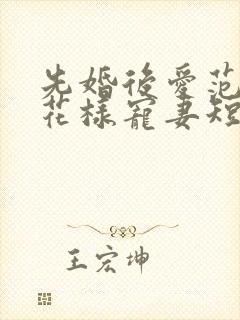 先婚後愛范
花樣寵妻短
王宏坤